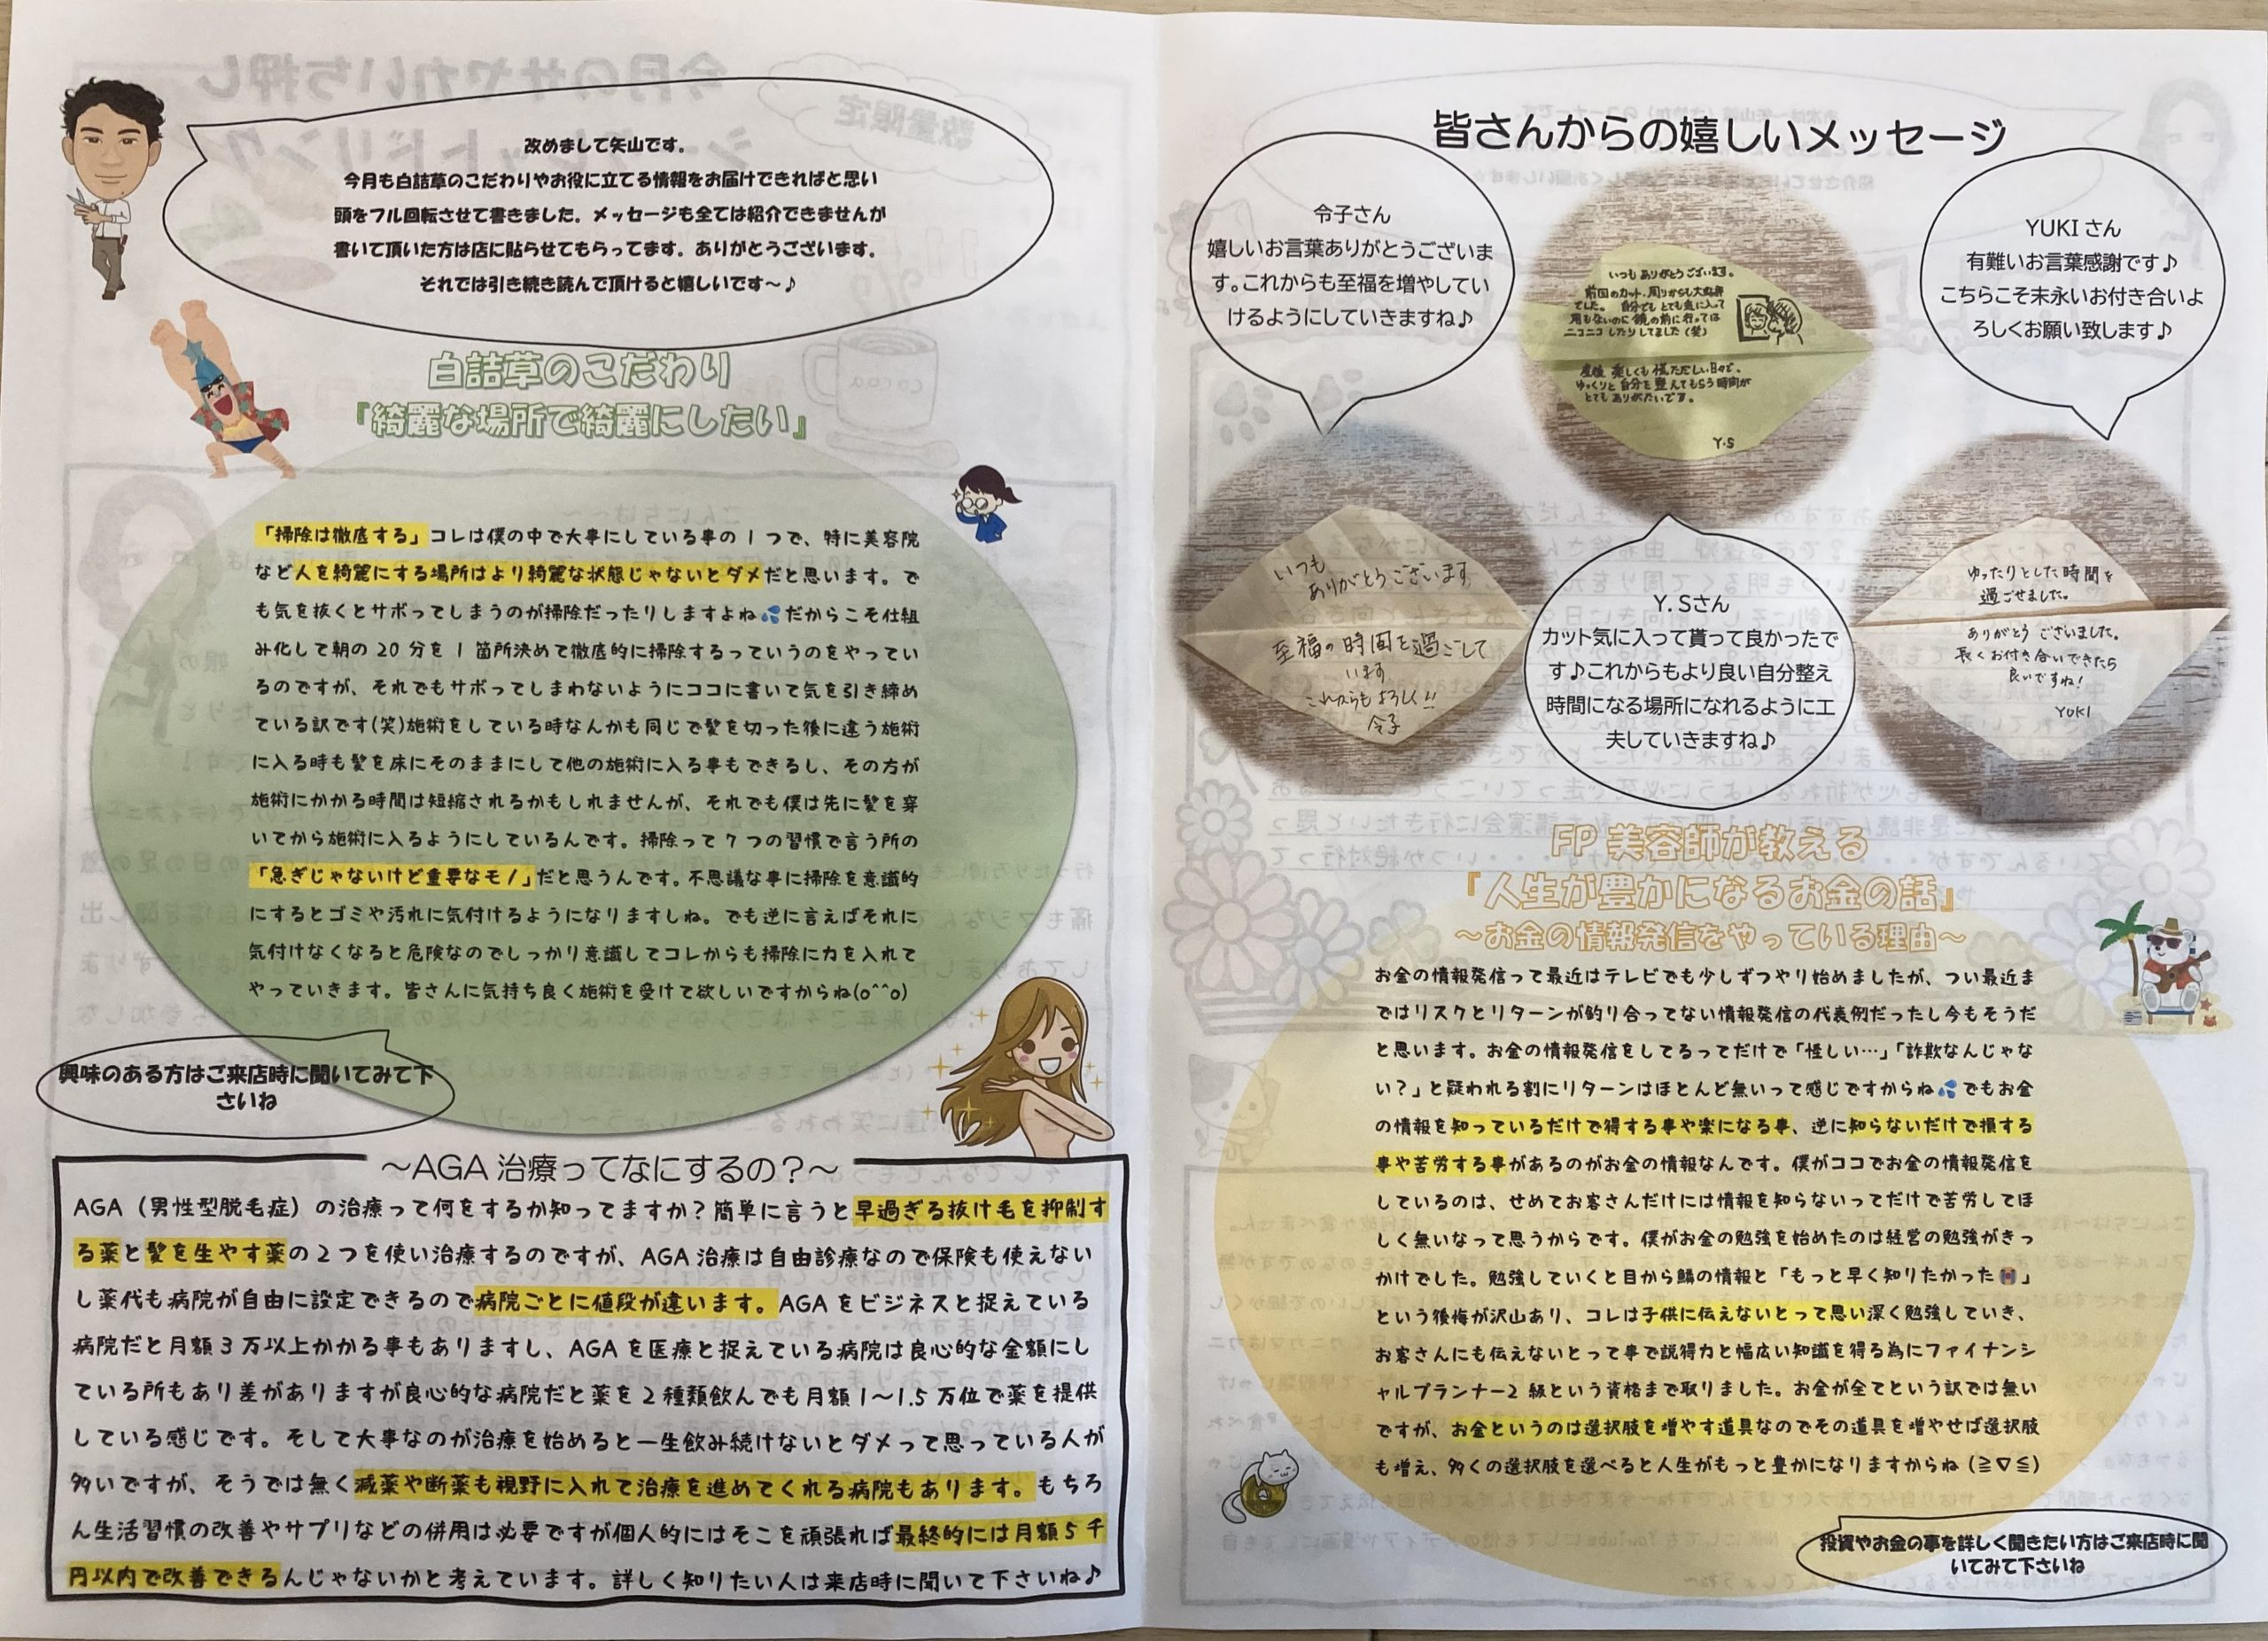 改めまして矢山です。
今月も白詰草のこだわりやお役に立てる情報をお届けできればと思い
頭をフル回転させて書きました。メッセージも全ては紹介できませんが
書いて頂いた方は店に貼らせてもらってます。ありがとうございます。
それでは引き続き読んで頂けると嬉しいです～♪
白詰草のこだわり
『綺麗な場所で綺麗にしたい』
「掃除は徹底する」コレは僕の中で大事にしている事の1つで、特に美容院
など人を綺麗にする場所はより綺麗な状態じゃないとダメだと思います。で
も気を抜くとサボってしまうのが掃除だったりしますよね💦だからこそ仕組
み化して朝の20分を1箇所決めて徹底的に掃除するっていうのをやってい
るのですが、それでもサボってしまわないようにココに書いて気を引き締め
ている訳です(笑)施術をしている時なんかも同じで髪を切った後に違う施術
に入る時も髪を床にそのままにして他の施術に入る事もできるし、その方が
施術にかかる時間は短縮されるかもしれませんが、それでも僕は先に髪を穿
いてから施術に入るようにしているんです。掃除って7つの習慣で言う所の
「急ぎじゃないけど重要なモノ」だと思うんです。不思議な事に掃除を意識的
にするとゴミや汚れに気付けるようになりますしね。でも逆に言えばそれに
気付けなくなると危険なのでしっかり意識してコレからも掃除に力を入れて
やっていきます。皆さんに気持ち良く施術を受けて欲しいですからね(o^^o)
興味のある方はご来店時に聞いてみて下
さいね
～AGA治療ってなにするの？～
AGA（男性型脱毛症）の治療って何をするか知ってますか？簡単に言うと早過ぎる抜け毛を抑制す
る薬と髪を生やす薬の2つを使い治療するのですが、AGA治療は自由診療なので保険も使えない
し薬代も病院が自由に設定できるので病院ごとに値段が違います。AGAをビジネスと捉えている
病院だと月額3万以上かかる事もありますし、AGAを医療と捉えている病院は良心的な金額にし
ている所もあり差がありますが良心的な病院だと薬を2種類飲んでも月額1～1.5万位で薬を提供
している感じです。そして大事なのが治療を始めると一生飲み続けないとダメって思っている人が
多いですが、そうでは無く減薬や断薬も視野に入れて治療を進めてくれる病院もあります。もちろ
ん生活習慣の改善やサプリなどの併用は必要ですが個人的にはそこを頑張れば最終的には月額5千
円以内で改善できるんじゃないかと考えています。詳しく知りたい人は来店時に聞いて下さいね♪
皆さんからの嬉しいメッセージ
令子さん
嬉しいお言葉ありがとうございま
す。これからも至福を増やしてい
けるようにしていきますね♪
いつもありがとうございます。
前回のカット、周りからも大好評
でした。自分でもとても気に入って
用もないのに鏡の前に行っては
ニコニコしたりしてました(笑)
産後楽しくも慌ただしい日々で、
ゆっくりと自分を整えてもらう時間が
とてもありがたいです。
Y.S
YUKIさん
有難いお言葉感謝です♪
こちらこそ末永いお付き合いよ
ろしくお願い致します♪
いつも
ありがとうございます
至福の時間を過ごして
います
これからもよろしく!!
令子
Y. Sさん
カット気に入って貰って良かったで
す♪これからもより良い自分整え
時間になる場所になれるように工
夫していきますね♪
ゆったりとした時間を
過ごせました。
ありがとうございました。
長くお付き合いできたら
良いですね！
YUKI
FP美容師が教える
『人生が豊かになるお金の話』
～お金の情報発信をやっている理由～
お金の情報発信って最近はテレビでも少しずつやり始めましたが、つい最近ま
ではリスクとリターンが釣り合ってない情報発信の代表例だったし今もそうだ
と思います。お金の情報発信をしてるってだけで「怪しい…」「詐欺なんじゃな
い？」と疑われる割にリターンはほとんど無いって感じですからね💦でもお金
の情報を知っているだけで得する事や楽になる事、逆に知らないだけで損する
事や苦労する事があるのがお金の情報なんです。僕がココでお金の情報発信を
しているのは、せめてお客さんだけには情報を知らないってだけで苦労してほ
しく無いなって思うからです。僕がお金の勉強を始めたのは経営の勉強がきっ
かけでした。勉強していくと目から鱗の情報と「もっと早く知りたかった」
という後悔が沢山あり、コレは子供に伝えないとって思い深く勉強していき、
お客さんにも伝えないとって事で説得力と幅広い知識を得る為にファイナンシ
ャルプランナー2級という資格まで取りました。お金が全てという訳では無い
ですが、お金というのは選択肢を増やす道具なのでその道具を増やせば選択肢
も増え、多くの選択肢を選べると人生がもっと豊かになりますからね(≧∇≦)
投資やお金の事を詳しく聞きたい方はご来店時に聞
いてみて下さいね